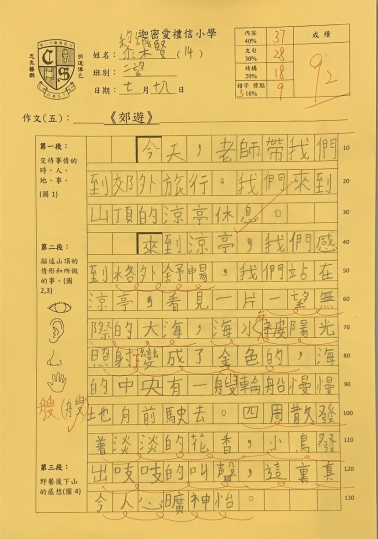 迦密愛禮信小學
姓名：黎樂賢（14）
班別：二望
日期：十一月十八日
內容 40% 37
文句 30% 28
結構 20% 18
錯字 標點 10% 9
成績
92
作文(五)：《郊遊》
第一段：
交待事情的
時、人、
地、事。
(圖1)
今天，老師帶我們 10
到郊外旅行。我們來到 20
山頂的涼亭休息。 30
第二段：
描述山頂的
情形和所做
的事。(圖
2,3)
來到涼亭，我們感 40
到格外舒暢，我們站在 50
涼亭，看見一片一望無 60
際的大海，海水被陽光 70
照射變成了金色的，海 80
的中央有一艘輪船慢慢 90
艘(艘)
地向前駛去。四周散發 100
着淡淡的花香，小鳥發 110
第三段：
野餐後下山
的感想(圖4)
出吱吱的叫聲，這裏真 120
令人心曠神怡。 130